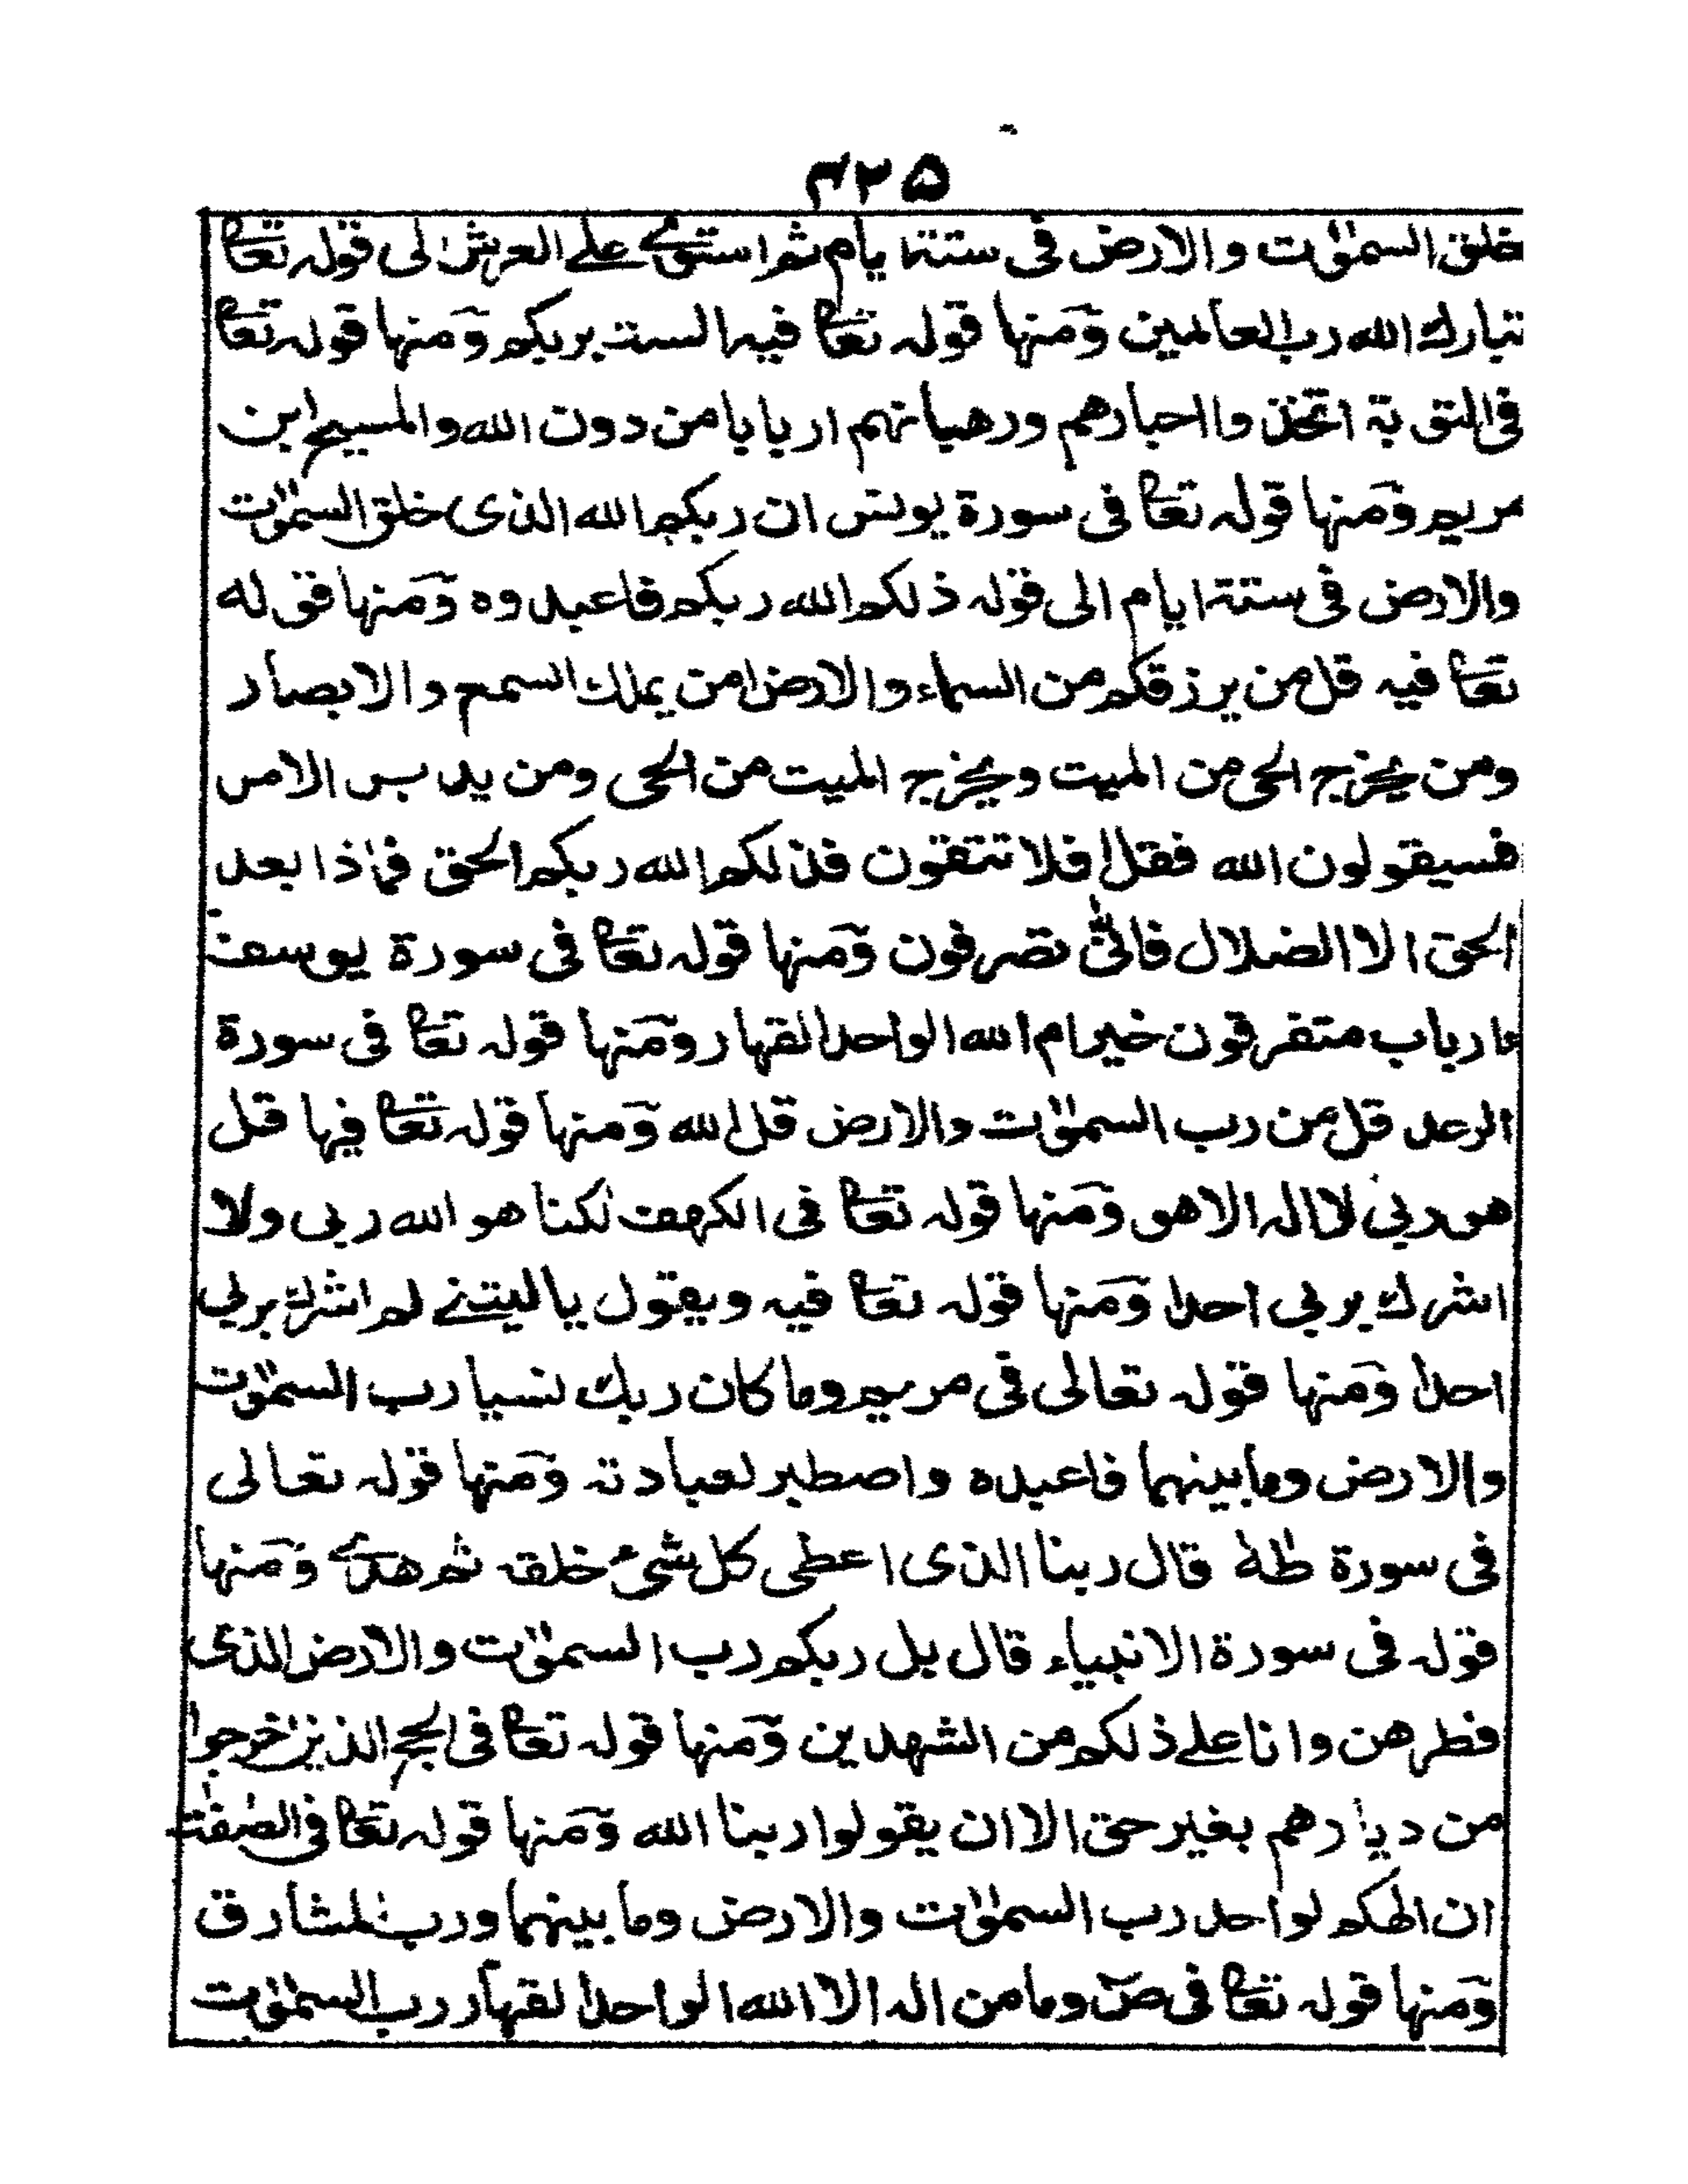 ۴۲۵
خلق السمٰوٰت والارض فی ستۃ ایام ثم استوے علے العرش الی قولہ تعا
تبارك الله رب العالمین وَمنہا قولہ تعا فیہ الست بربکم وَمنہا قولہ تعا
فی التوبة اتخذوا احبارهم ورهبانہم اربابا من دون الله والمسیح ابن
مریم وَمنہا قولہ تعا فی سورة یونس ان ربکم الله الذی خلق السمٰوٰت
والارض فی ستۃ ایام الی قولہ ذلکم الله ربکم فاعبدوه وَمنہا قوله
تعا فیہ قل من یرزقکم من السماء والارض امن یملك السمع والابصار
ومن یخرج الحی من المیت ویخرج المیت من الحی ومن یدبر الامر
فسیقولون الله فقل افلا تتقون فذلکم الله ربکم الحق فماذا بعد
الحق الا الضلال فانّٰی تصرفون وَمنہا قولہ تعا فی سورة یوسف
ءارباب متفرقون خیر ام الله الواحد القهار وَمنہا قولہ تعا فی سورة
الرعد قل من رب السمٰوٰت والارض قل الله وَمنہا قولہ تعا فیها قل
هو ربی لا الہ الا هو وَمنہا قولہ تعا فی الکهف لٰکنا هو الله ربی ولا
اشرك بربی احدا وَمنہا قولہ تعا فیہ ویقول یالیتنے لم اشرك بربی
احدا وَمنہا قولہ تعالی فی مریم وما کان ربك نسیا رب السمٰوٰت
والارض وما بینہما فاعبده واصطبر لعبادتہ وَمنہا قولہ تعالی
فی سورة طٰهٰ قال ربنا الذی اعطی کل شیء خلقہ ثم هدے وَمنہا
قولہ فی سورة الانبیاء قال بل ربکم رب السمٰوٰت والارض الذی
فطرهن وانا علے ذلکم من الشهدین وَمنہا قولہ تعا فی الحج الذین اخرجوا
من دیارهم بغیر حق الا ان یقولوا ربنا الله وَمنہا قولہ تعا فی الصٰفٰت
ان الٰهکم لواحد رب السمٰوٰت والارض وما بینہما ورب المشارق
وَمنہا قولہ تعا فی صٓ وما من الہ الا الله الواحد القهار رب السمٰوٰت